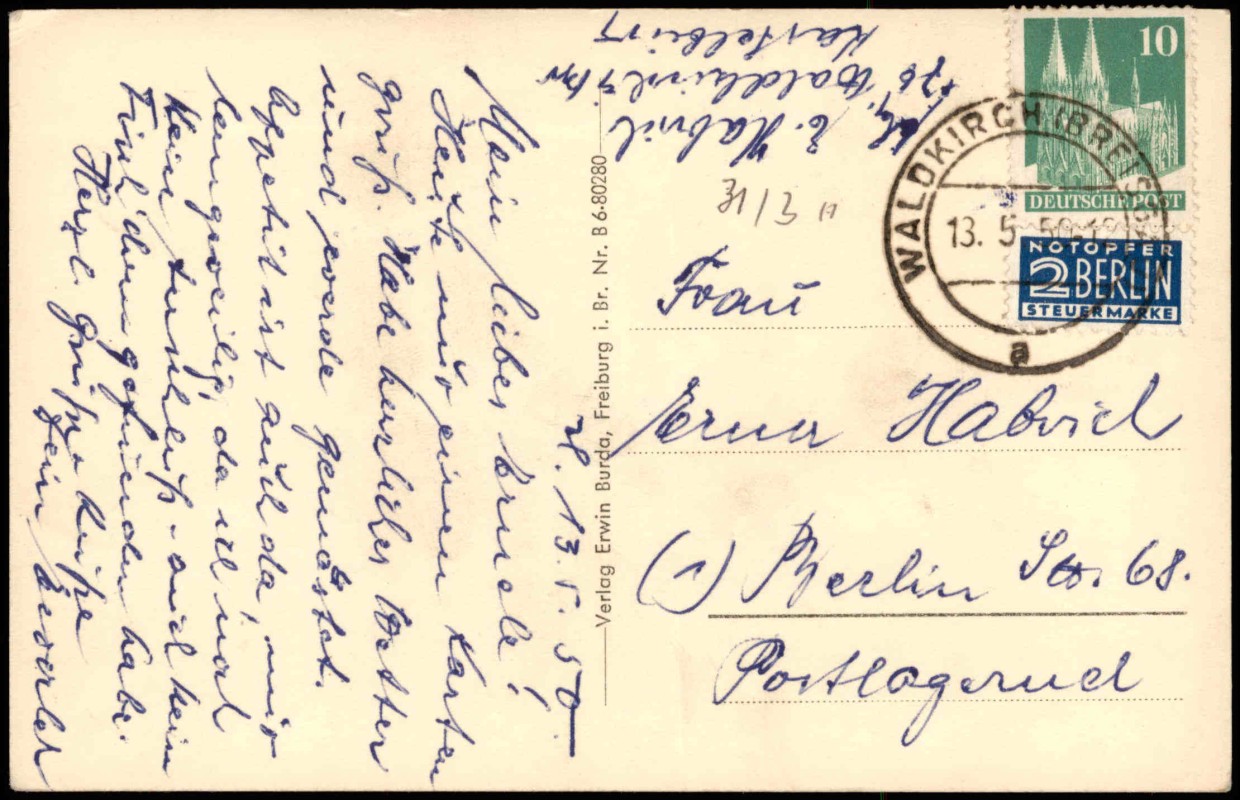 Kastelburg
Waldkirch i/Br
E. Habrich
31/3
10
DEUTSCHE POST
WALDKIRCH (BREISG)
13. 5. 50-12
a
NOTOPFER
2 BERLIN
STEUERMARKE
Frau
Erna Habrich
(1) Berlin SW. 68.
Postlagernd
Verlag Erwin Burda, Freiburg i. Br. Nr. B 6·80280
13. 5. 50
Mein liebes Ernele!
Heute nur einen Karten
gruß. Habe herrliches Wetter
und werde gemästet.
Appetit ist auch da, nur
langweilig, da ich noch
kein Anschluß und kein
Freundin gefunden habe.
Herzl. Grüße + Küsse
Dein